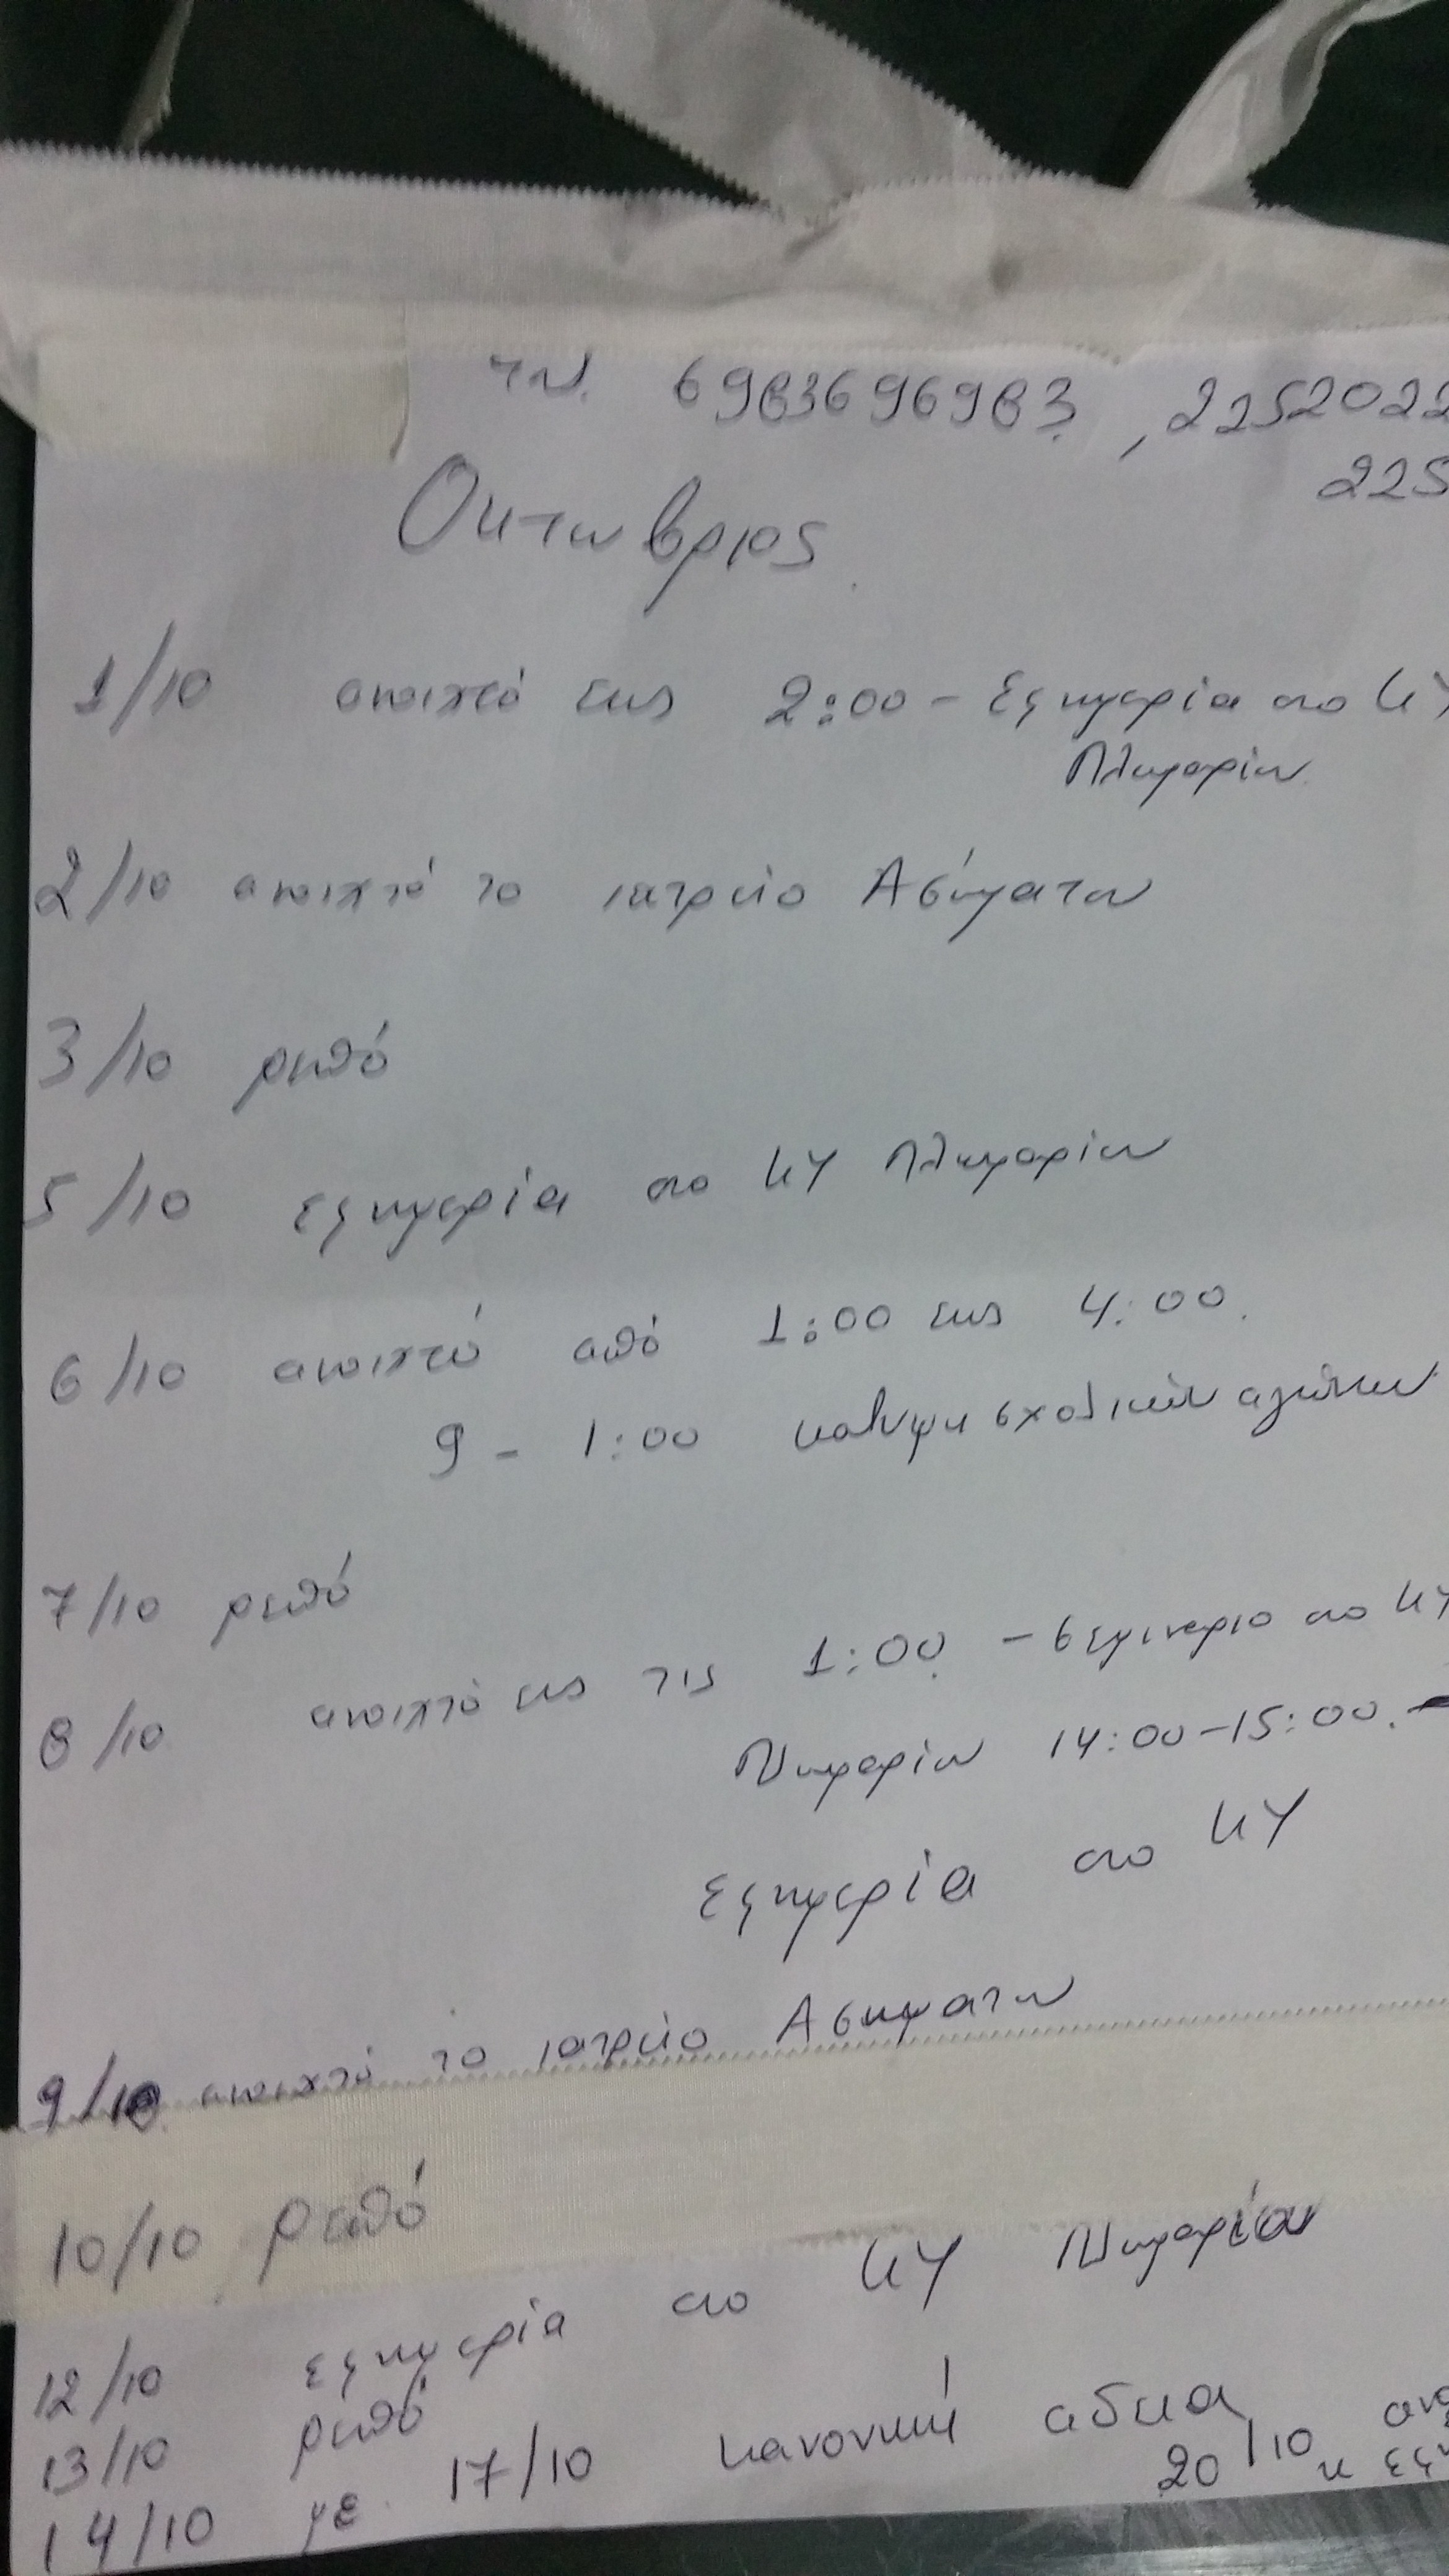 τηλ. 6983696983, 2252022
225
Οκτωβριος
1/10 ανοιχτό εως 2:00 - Εφημερία στο ΚΥ
Πλωμαρίου
2/10 ανοιχτό το ιατρείο Ασώματου
3/10 ρεπό
5/10 εφημερία στο ΚΥ Πλωμαρίου
6/10 ανοιχτό από 1:00 εως 4:00.
9 - 1:00 καλυψη σχολικών αγώνων
7/10 ρεπό
8/10 ανοιχτό εως τις 1:00. - σεμιναριο στο ΚΥ
Πλωμαρίου 14:00-15:00. -
Εφημερία στο ΚΥ
9/10 ανοιχτό το ιατρείο Ασωματου
10/10 ρεπό
12/10 εφημερία στο ΚΥ Πλωμαρίου
13/10 ρεπό
14/10 με 17/10 κανονική αδεια
20/10